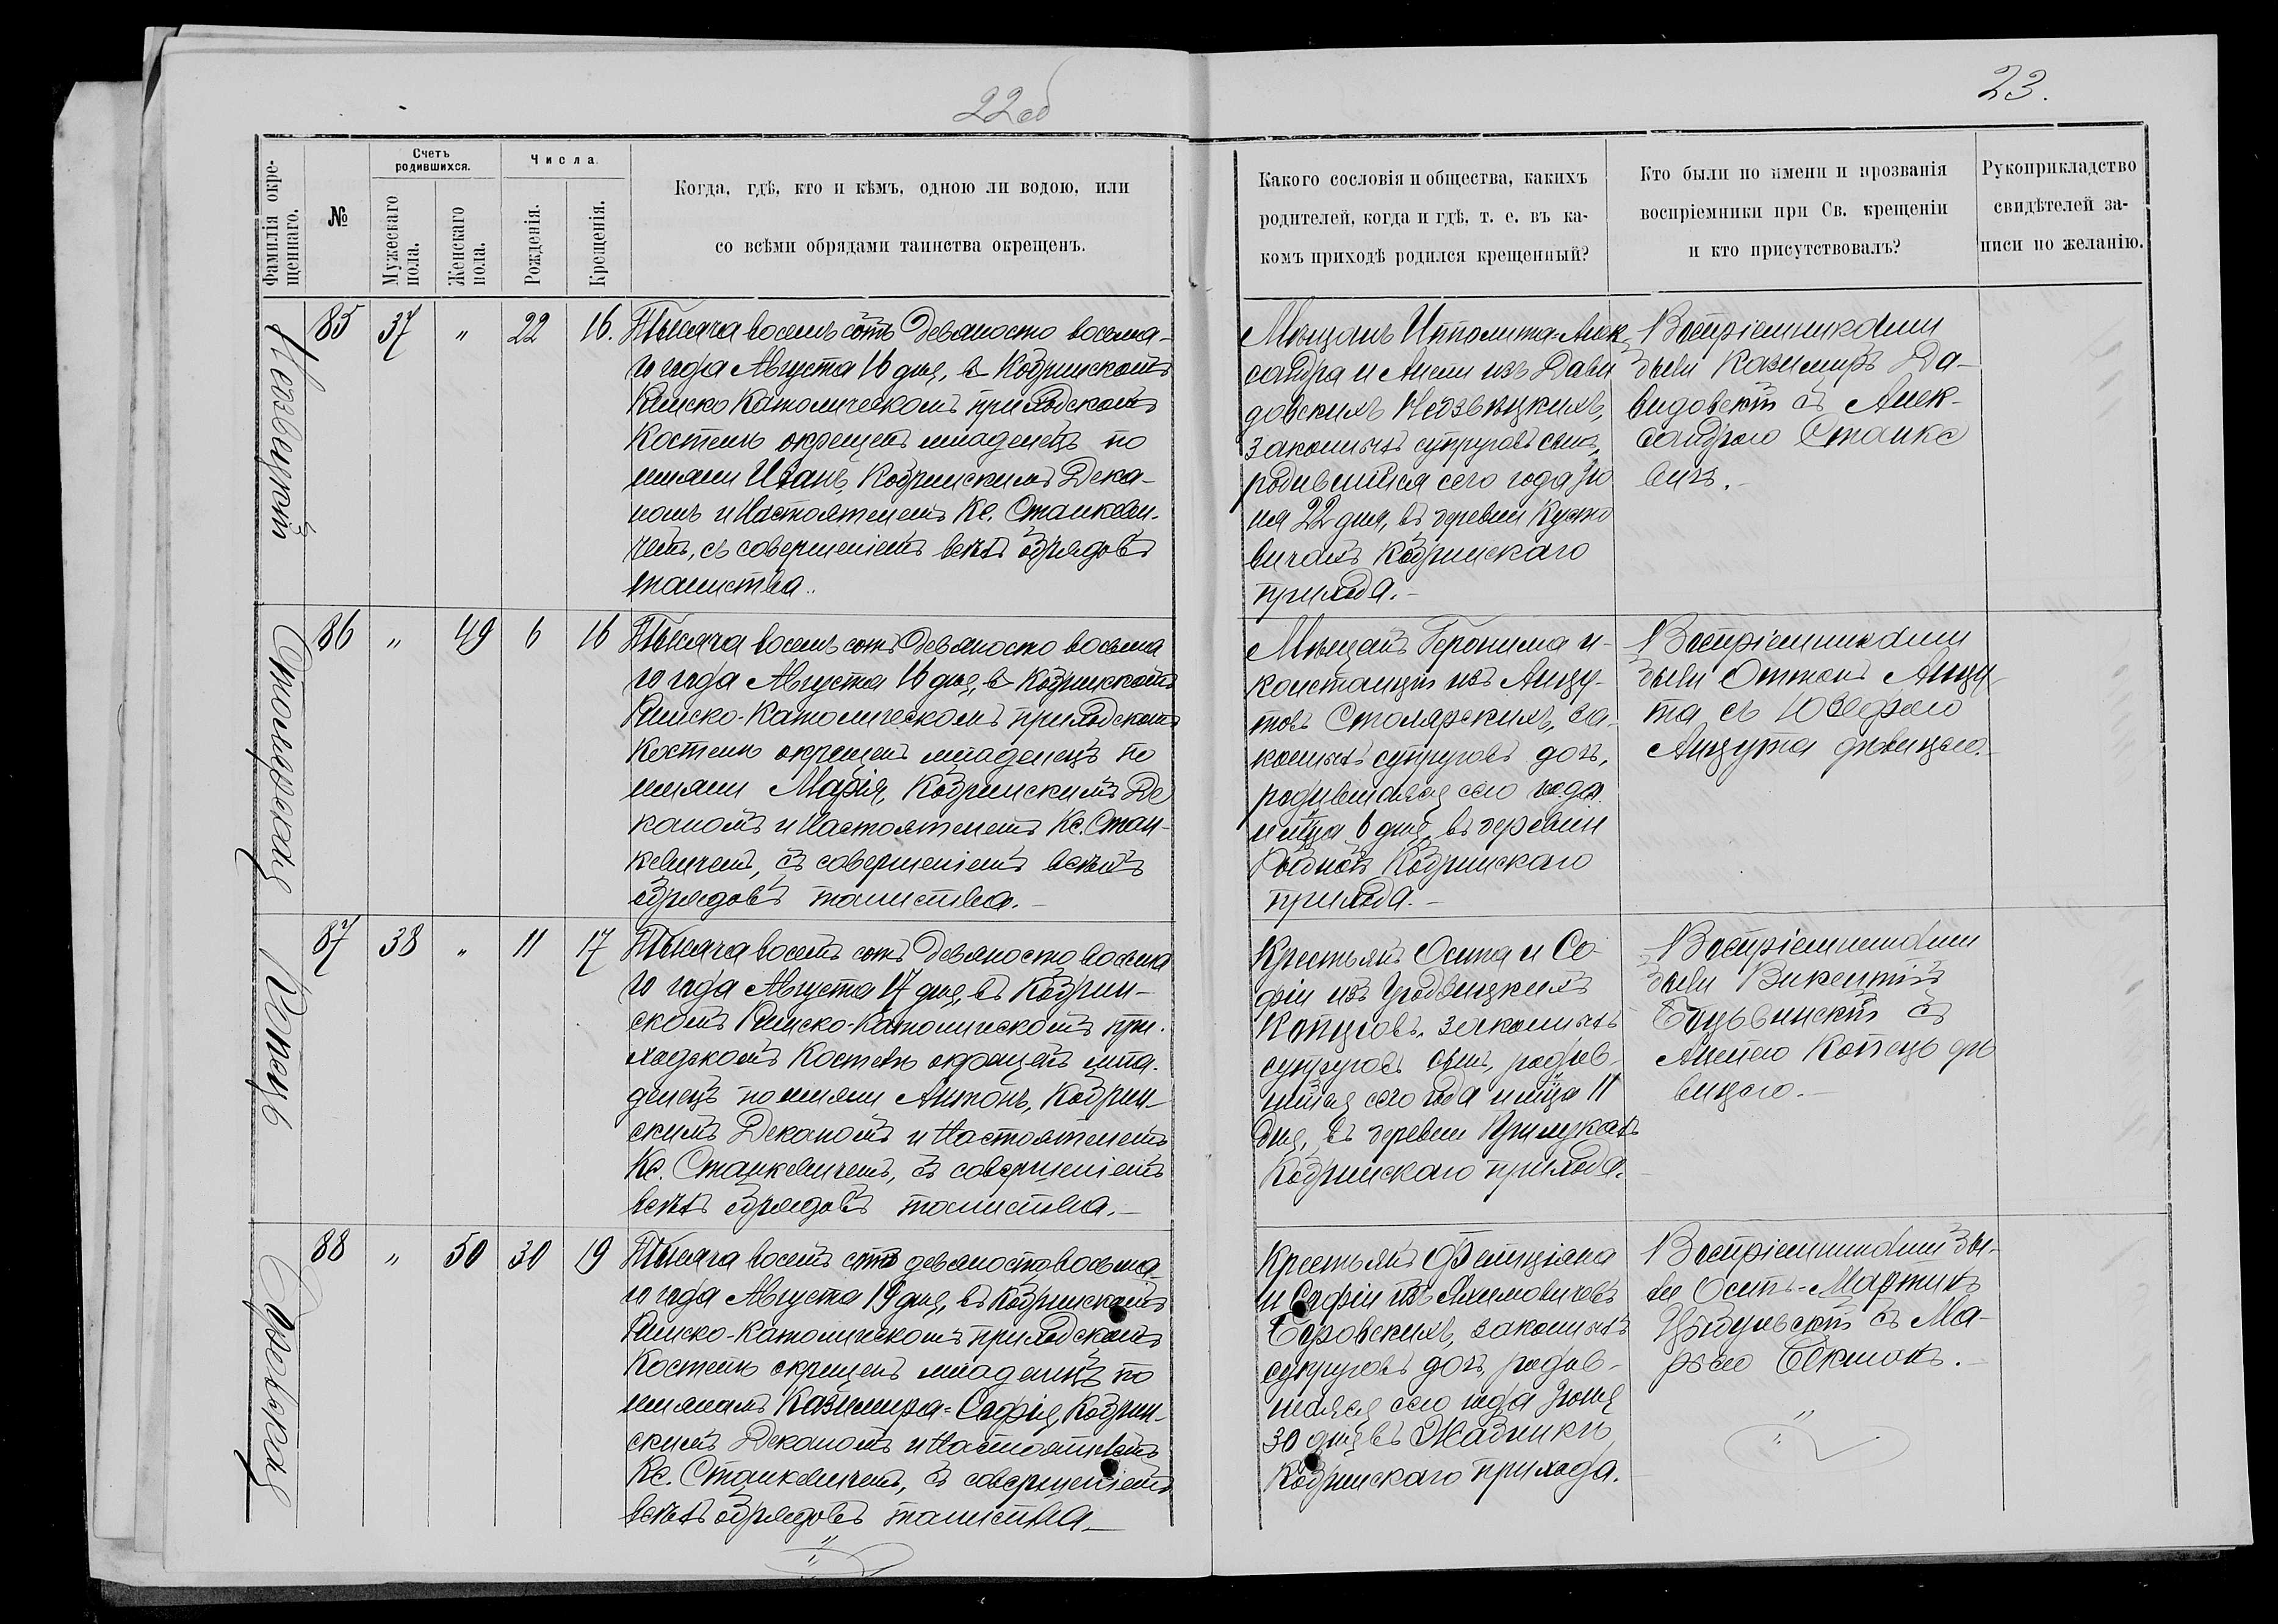 22 об
23.
Фамилія окре-
щеннаго.
№
Счетъ
родившихся.
Мужескаго
пола.
Женскаго
пола.
Числа.
Рожденія.
Крещенія.
Когда, гдѣ, кто и кѣмъ, одною ли водою, или
со всѣми обрядами таинства окрещенъ.
Какого сословія и общества, какихъ
родителей, когда и гдѣ, т. е. въ ка-
комъ приходѣ родился крещенный?
Кто были по имени и прозванія
воспріемники при Св. крещеніи
и кто присутствовалъ?
Рукоприкладство
свидѣтелей за-
писи по желанію.
85 37 " 22 16.
Тысяча восемь сотъ девяносто восьма-
го года Августа 16 дня, въ Кобринскомъ
Римско Католическомъ приходскомъ
Костелѣ окрещенъ младенецъ по
имени Иванъ, Кобринскимъ Дека-
номъ и Настоятелемъ Кс. Станкеви-
чемъ, съ совершеніемъ всѣхъ обрядовъ
таинства..
Мѣщанъ Ипполита-Алек-
сандра и Анны изъ Дави
довскихъ
законныхъ супруговъ сынъ,
родившійся сего года Ію
ля 22 дня, въ деревни Кусто
вичахъ Кобринскаго
прихода.-
Воспріемниками
были Казимиръ Да-
видовскій съ Алек-
сандрою Станке
вичъ.-
Столярская
86 " 49 6 16
Тысяча восемь сотъ девяносто восьма
го года Августа 16 дня, въ Кобринскомъ
Римско-Католическомъ приходскомъ
Костелѣ окрещенъ младенецъ по
имени Марія, Кобринскимъ Де
каномъ и Настоятелемъ Кс. Стан-
кевичемъ, съ совершеніемъ всѣхъ
обрядовъ таинства.-
Мѣщанъ Геронима и-
Констанціи изъ Анцу-
товъ Столярскихъ, за-
конныхъ супруговъ дочь,
родившаяся сего года
м-ца 6 дня, въ деревни
Кобринскаго
прихода.-
Воспріемниками
были Оттонъ Анцу
та съ Юзефою
Анцута дѣвицею.-
Копецъ
87 38 " 11 17
Тысяча восемь сотъ девяносто восьма
го года Августа 17 дня, въ Кобрин-
скомъ Римско-Католическомъ при-
ходскомъ Костелѣ окрещенъ мла-
денецъ по имени Антонъ, Кобрин-
скимъ Деканомъ и Настоятелемъ
Кс. Станкевичемъ, съ совершеніемъ
всѣхъ обрядовъ таинства.-
Крестьянъ Осипа и Со
фіи изъ
Копцовъ, законныхъ
супруговъ сынъ, родив-
шійся сего года м-ца 11
дня, въ деревни Прилукахъ
Кобринскаго прихода.
Воспріемниками
были Викентій
съ
Анною Копецъ дѣ
вицею.-
88 " 50 30 19
Тысяча восемь сотъ девяносто восьма-
го года Августа 19 дня, въ Кобринскомъ
Римско-Католическомъ приходскомъ
Костелѣ окрещенъ младенецъ по
именамъ Казимира-Софія, Кобрин-
скимъ Деканомъ и Настоятелемъ
Кс. Станкевичемъ, съ совершеніемъ
всѣхъ обрядовъ таинства-
Крестьянъ Фелиціяна
и Софіи изъ Якимовичовъ
законныхъ
супруговъ дочь, родив-
шаяся сего года Іюня
30 дня въ
Кобринскаго прихода.
Воспріемниками бы-
ли Осипъ-Мартинъ
съ Ма-
рьею